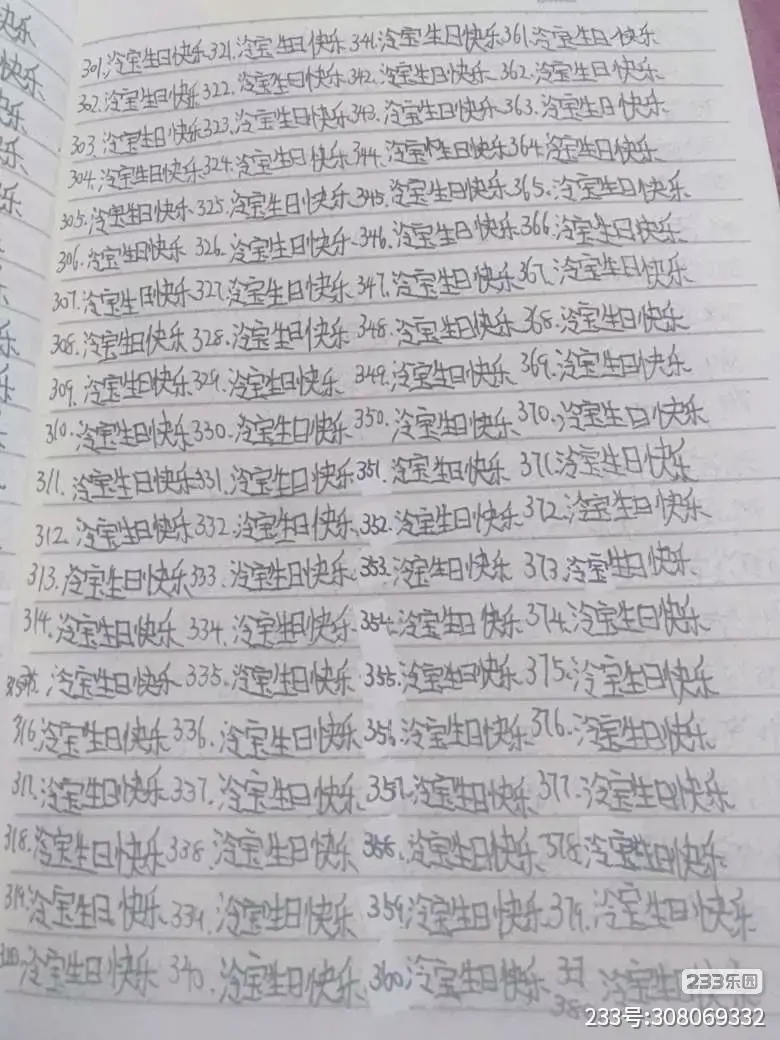 301.冷宝生日快乐 321.冷宝生日快乐 341.冷宝生日快乐 361.冷宝生日快乐
302.冷宝生日快乐 322.冷宝生日快乐 342.冷宝生日快乐 362.冷宝生日快乐
303.冷宝生日快乐 323.冷宝生日快乐 343.冷宝生日快乐 363.冷宝生日快乐
304.冷宝生日快乐 324.冷宝生日快乐 344.冷宝生日快乐 364.冷宝生日快乐
305.冷宝生日快乐 325.冷宝生日快乐 345.冷宝生日快乐 365.冷宝生日快乐
306.冷宝生日快乐 326.冷宝生日快乐 346.冷宝生日快乐 366.冷宝生日快乐
307.冷宝生日快乐 327.冷宝生日快乐 347.冷宝生日快乐 367.冷宝生日快乐
308.冷宝生日快乐 328.冷宝生日快乐 348.冷宝生日快乐 368.冷宝生日快乐
309.冷宝生日快乐 329.冷宝生日快乐 349.冷宝生日快乐 369.冷宝生日快乐
310.冷宝生日快乐 330.冷宝生日快乐 350.冷宝生日快乐 370.冷宝生日快乐
311.冷宝生日快乐 331.冷宝生日快乐 351.冷宝生日快乐 371.冷宝生日快乐
312.冷宝生日快乐 332.冷宝生日快乐 352.冷宝生日快乐 372.冷宝生日快乐
313.冷宝生日快乐 333.冷宝生日快乐 353.冷宝生日快乐 373.冷宝生日快乐
314.冷宝生日快乐 334.冷宝生日快乐 354.冷宝生日快乐 374.冷宝生日快乐
冷宝生日快乐 335.冷宝生日快乐 355.冷宝生日快乐 375.冷宝生日快乐
316.冷宝生日快乐 336.冷宝生日快乐 356.冷宝生日快乐 376.冷宝生日快乐
317.冷宝生日快乐 337.冷宝生日快乐 357.冷宝生日快乐 377.冷宝生日快乐
318.冷宝生日快乐 338.冷宝生日快乐 358.冷宝生日快乐 378.冷宝生日快乐
319.冷宝生日快乐 339.冷宝生日快乐 359.冷宝生日快乐 379.冷宝生日快乐
冷宝生日快乐 340.冷宝生日快乐 360.冷宝生日快乐 冷宝生日
233乐园
233号:308069332